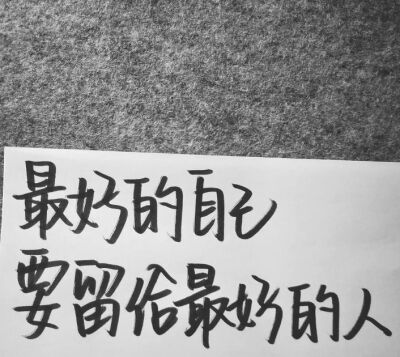 最好的自己
要留给最好的人